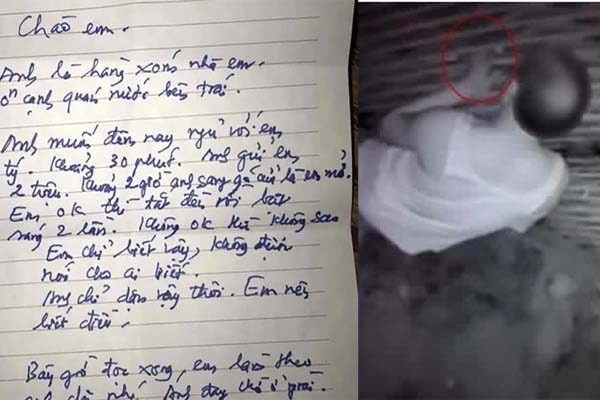 Chào em.
Anh là hàng xóm nhà em.
ở cạnh quán nước bên trái.
Anh muốn đêm nay ngủ với em
tý. Khoảng 30 phút. Anh gửi em
2 triệu. Khoảng 2 giờ anh sang gõ cửa là em mở.
Em ok thì tắt đèn rồi bật
sáng 2 lần. Không ok thì không sao
Em chỉ biết vậy, không được
nói cho ai biết.
Anh chỉ dám vậy thôi. Em nên
biết điều.
Bây giờ đọc xong, em làm theo
nhé. Anh đang chờ ở